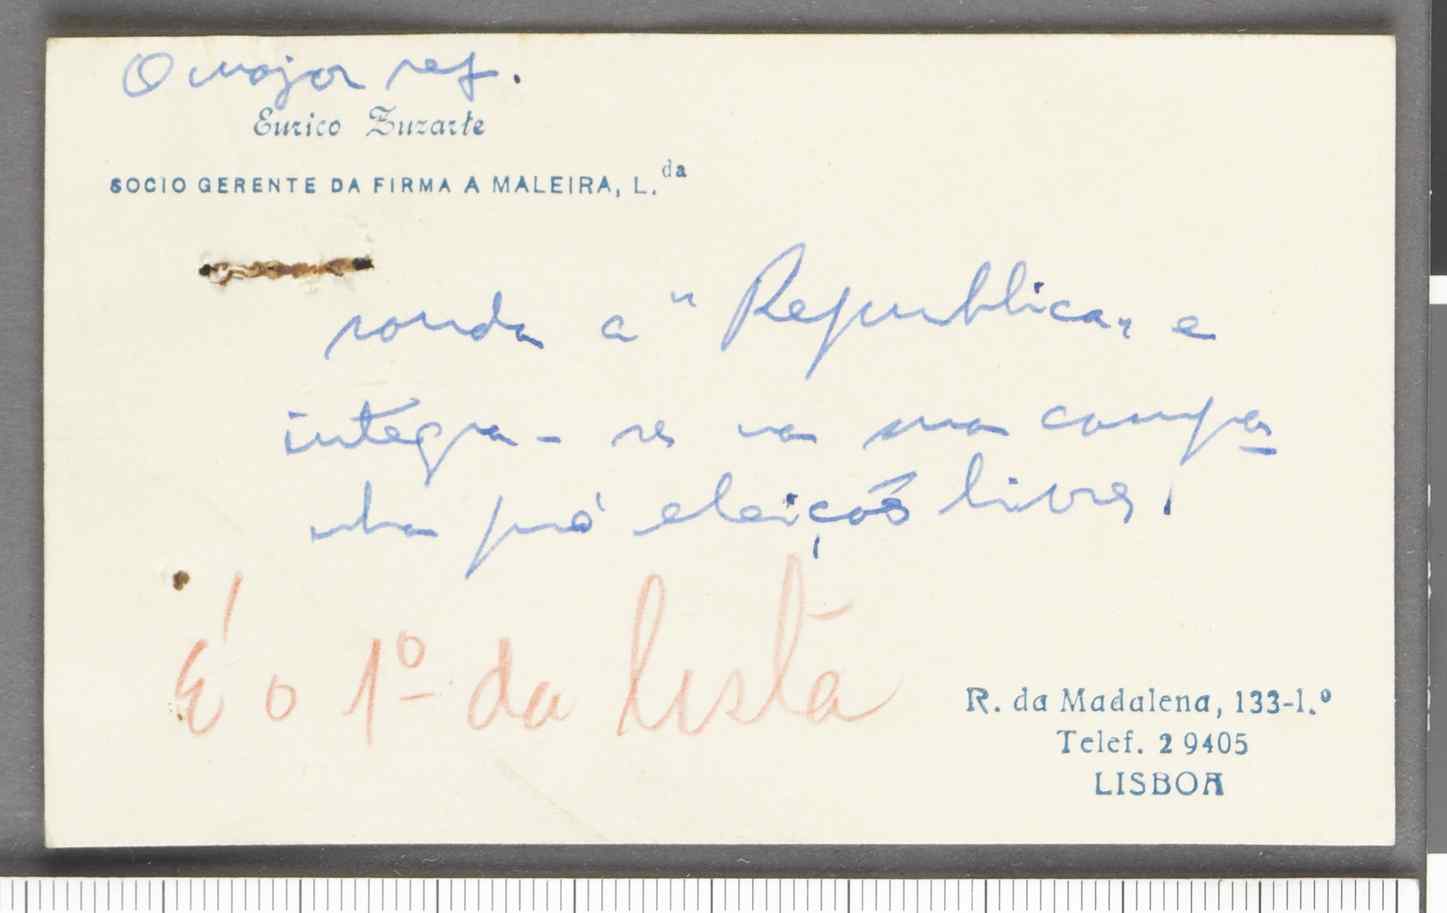 O major ref.
Eurico Zuzarte
SOCIO GERENTE DA FIRMA A MALEIRA, L.da
sauda a "Republica" e
integra-se na sua campa
nha pró eleições livres.
É o 1º da lista
R. da Madalena, 133-1.º
Telef. 2 9405
LISBOA